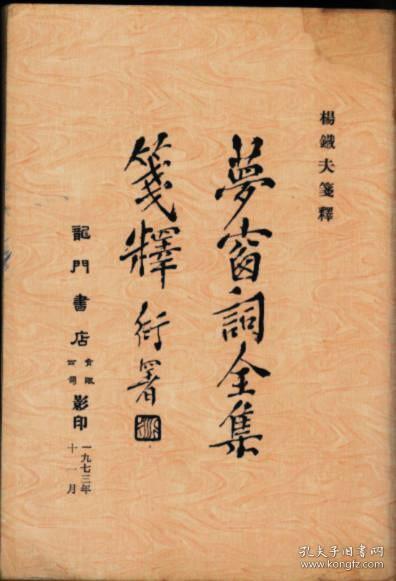 楊鐵夫箋釋
夢窗詞全集
箋釋 衍署
龍門書店
有限
公司
影印
一九七三年
十一月
孔夫子旧书网
www.kongfz.com